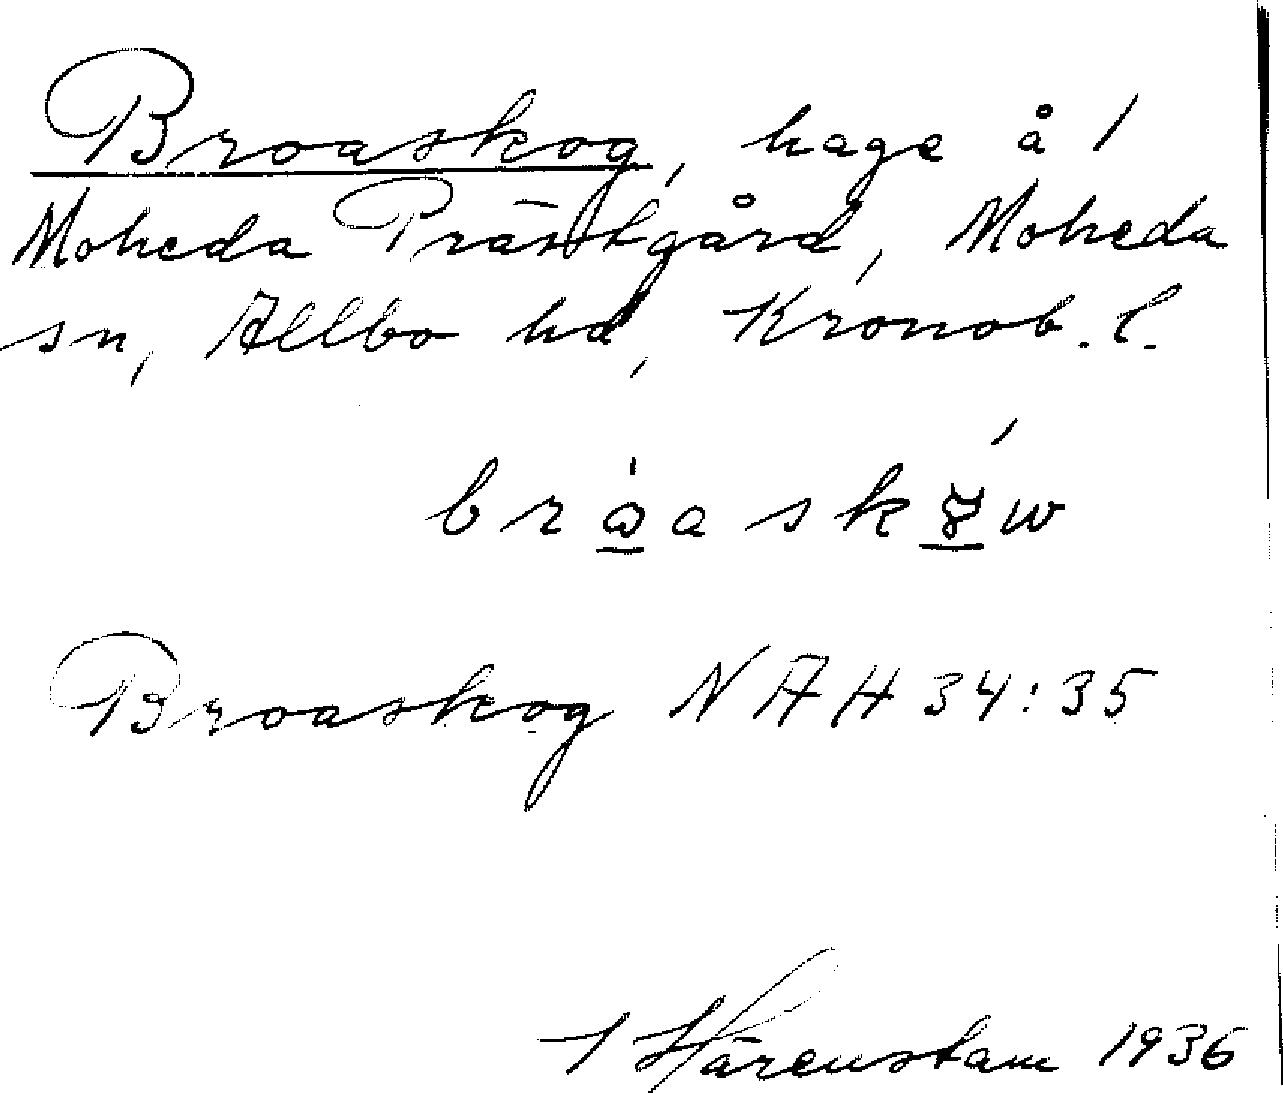 Broaskog, hage å 1
Moheda Prästgård, Moheda
sn, Allbo hd, Kronob. l.
Broaskog NAH 34:35
Härenstam 1936